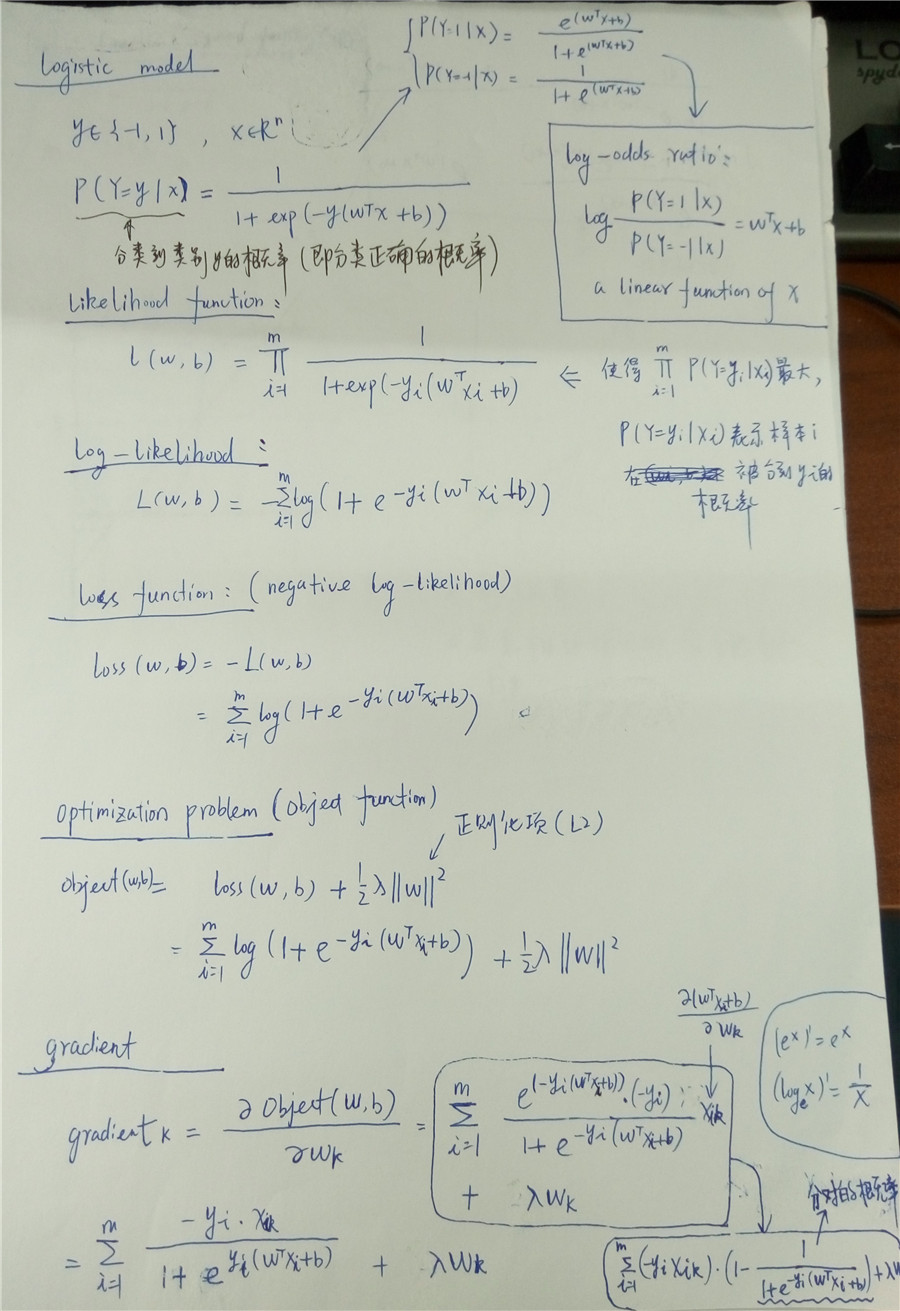 Logistic model
{ P(Y=1|x) = e^(wᵀx+b) / (1+e^(wᵀx+b))
P(Y=-1|x) = 1 / (1+e^(wᵀx+b))
y∈{-1, 1} , x∈Rⁿ
P(Y=y|x) = 1 / (1+exp(-y(wᵀx+b)))
分类到类别y的概率(即分类正确的概率)
log-odds ratio:
log P(Y=1|x) / P(Y=-1|x) = wᵀx+b
a linear function of x
Likelihood function:
l(w,b) = ∏_{i=1}^{m} 1 / (1+exp(-yi(wᵀxi+b)) ⇐ 使得 ∏_{i=1}^{m} P(Y=yi|xi)最大,
P(Y=yi|xi)表示样本i
在 被分到yi的
概率
Log-likelihood:
L(w,b) = -∑_{i=1}^{m} log(1+e^{-yi(wᵀxi+b)})
loss function: (negative log-likelihood)
loss(w,b) = -L(w,b)
= ∑_{i=1}^{m} log(1+e^{-yi(wᵀxi+b)})
Optimization problem (object function)
正则化项(L2)
object(w,b)= loss(w,b) + ½λ||w||²
= ∑_{i=1}^{m} log(1+e^{-yi(wᵀxi+b)}) + ½λ||w||²
gradient
∂(wᵀxi+b) / ∂wk
(eˣ)'=eˣ
(logₑx)'= 1/x
gradient k = ∂Object(w,b) / ∂wk = ∑_{i=1}^{m} e^{(-yi(wᵀxi+b))}·(-yi)· xik / (1+e^{-yi(wᵀxi+b)})
+ λwk
= ∑_{i=1}^{m} -yi·xik / (1+e^{yi(wᵀxi+b)}) + λwk
分对的概率
∑_{i=1}^{m} (-yixik)·(1- 1 / (1+e^{-yi(wᵀxi+b)}))+λw
LO
spyd